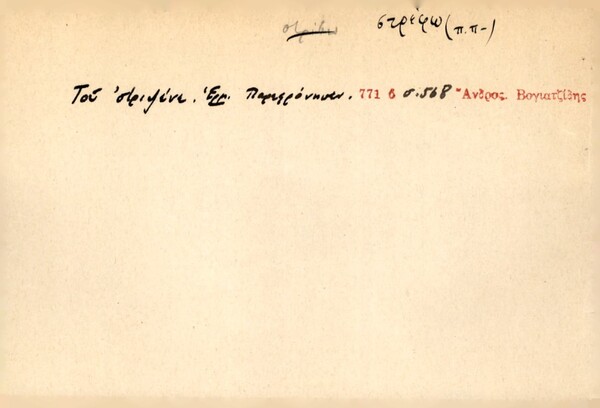 στρίβω στρέφω (π.π-)
Τοῦ 'στριψένε. Ἑρμ. Παρεφρόνησεν. 771 6 σ. 568 Ἄνδρος. Βογιατζίδης